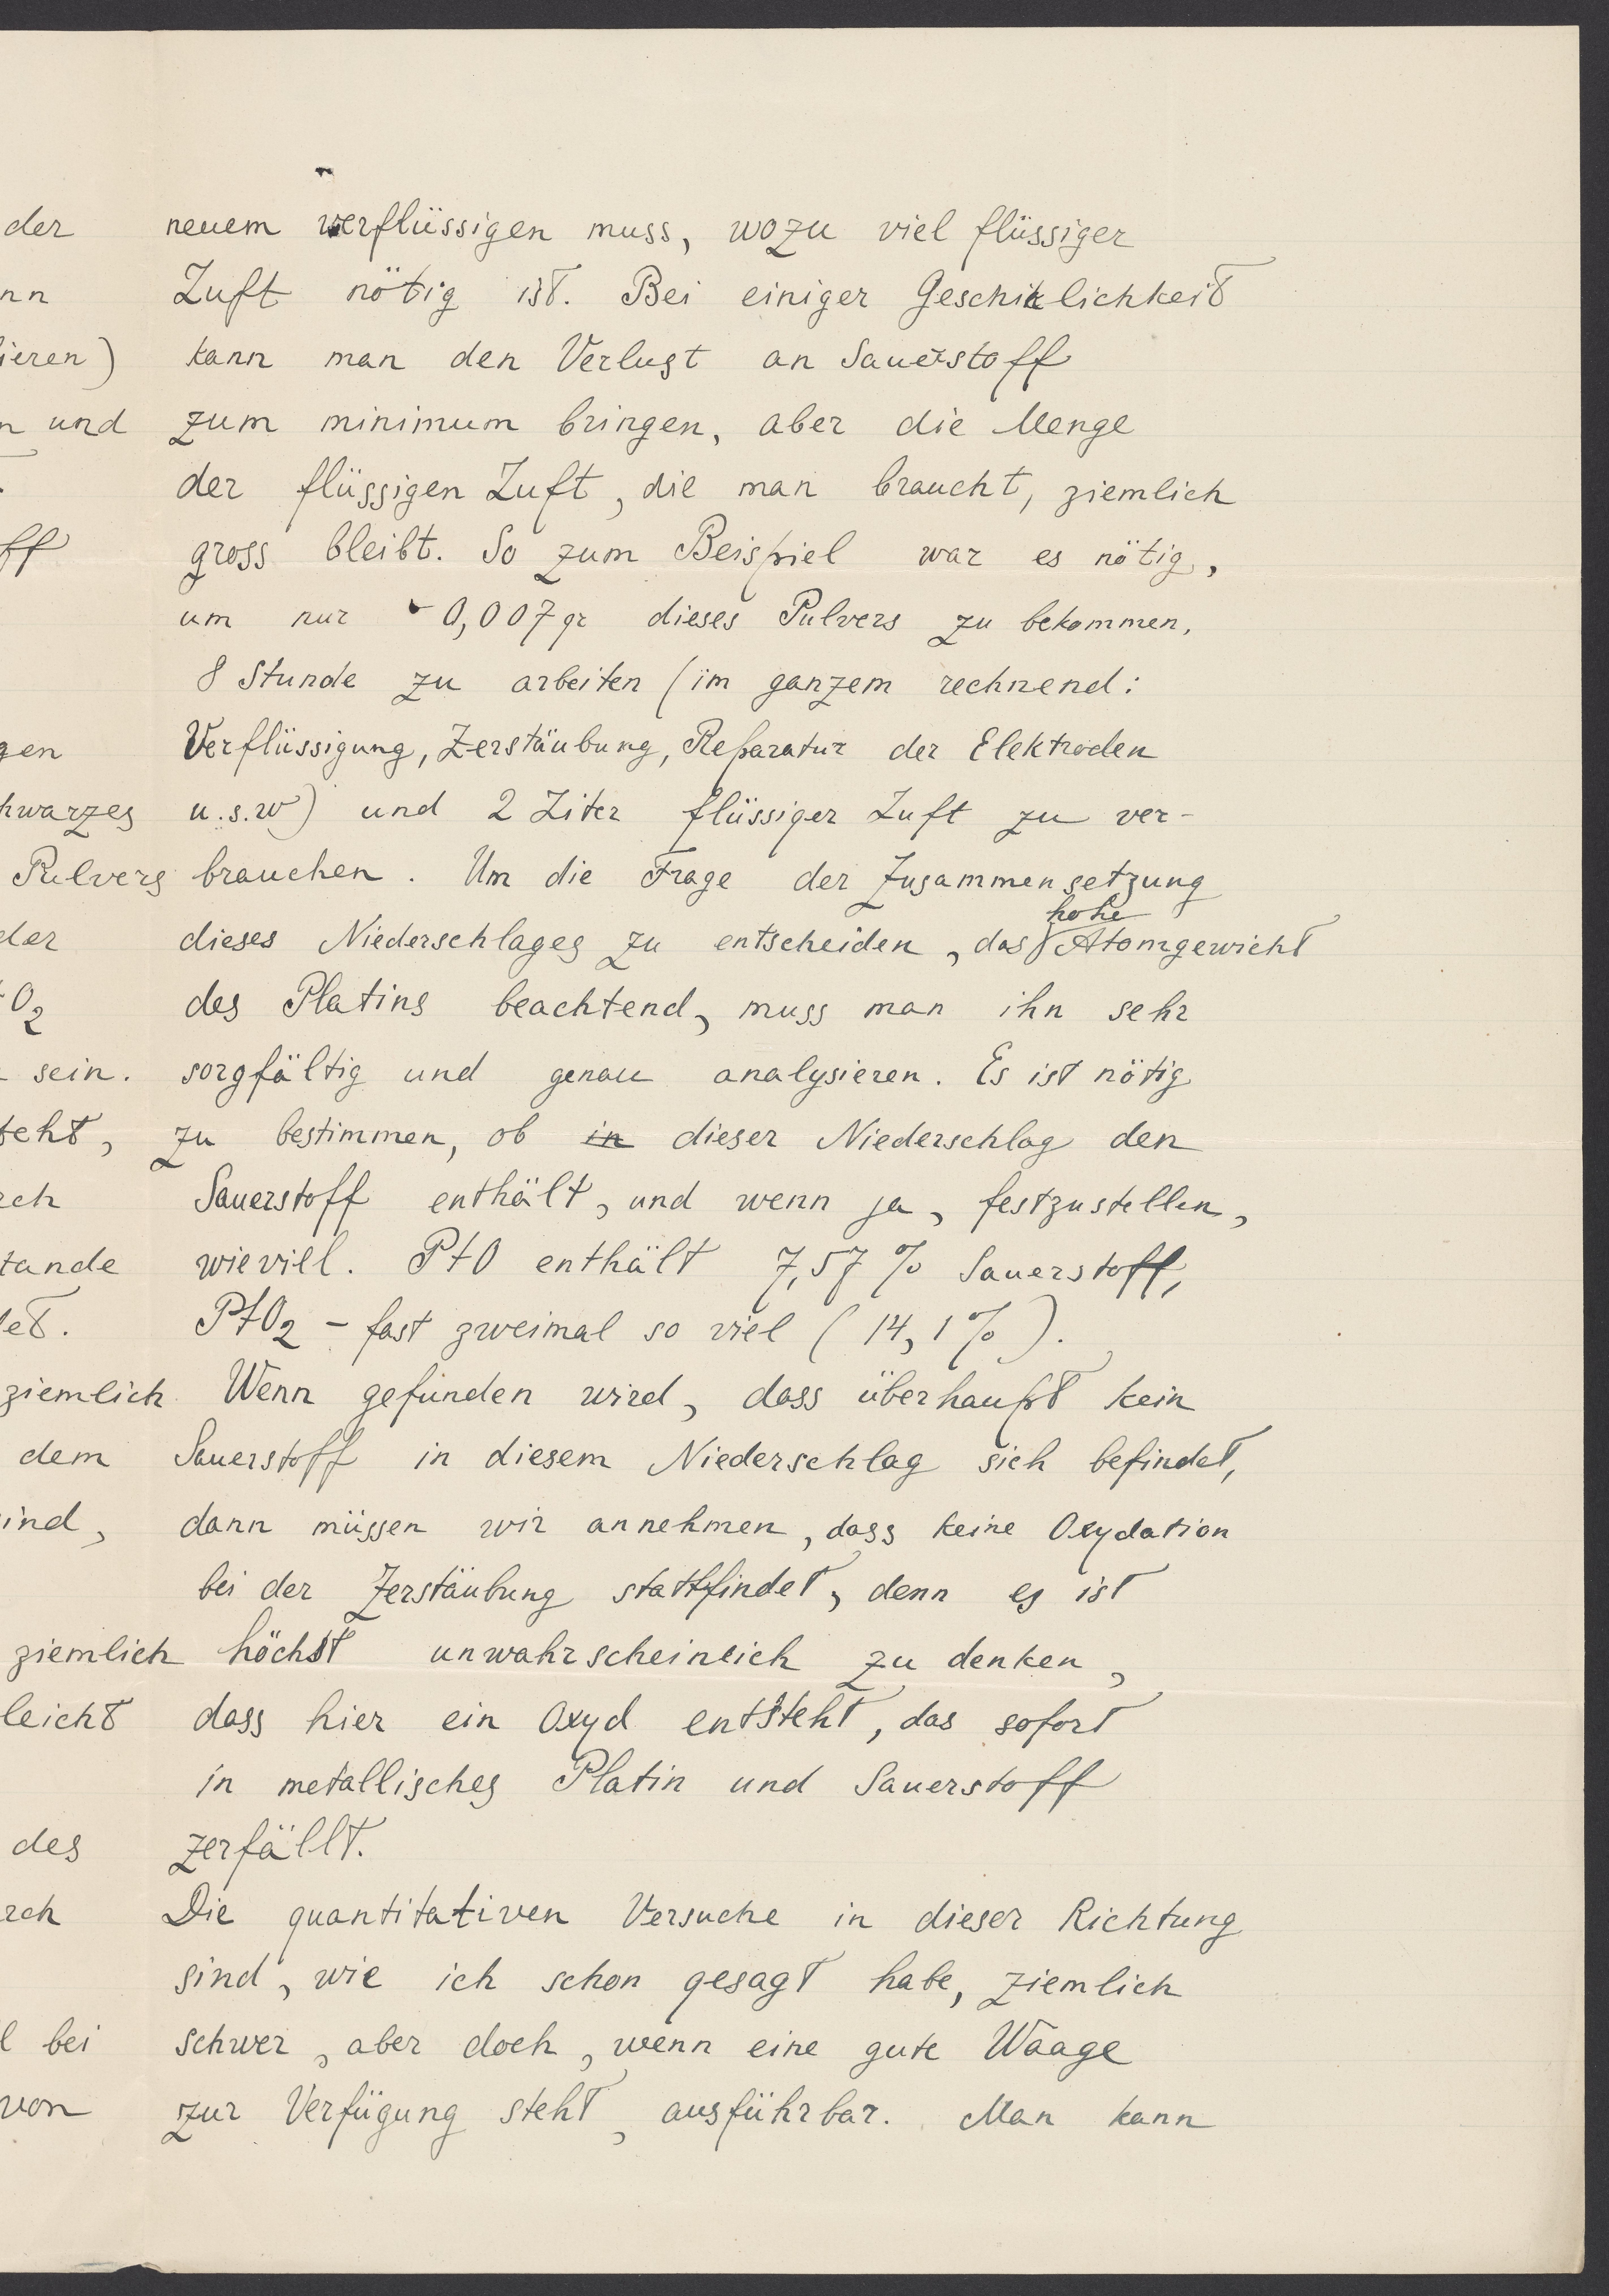 der
nn
ieren)
n und
ff
gen
hwarzes
Pulvers
der
tO2
sein.
teht,
rch
tande
det.
ziemlich
dem
sind,
ziemlich
leicht
des
rch
l bei
von
neuem verflüssigen muss, wozu viel flüssiger
Luft nötig ist. Bei einiger Geschiklichkeit
kann man den Verlust an Sauerstoff
zum minimum bringen, aber die Menge
der flüssigen Luft, die man braucht, ziemlich
gross bleibt. So zum Beispiel war es nötig,
um nur 0,007 gr dieses Pulvers zu bekommen,
8 Stunde zu arbeiten (im ganzem rechnend:
Verflüssigung, Zerstäubung, Reparatur der Elektroden
u.s.w) und 2 Liter flüssiger Luft zu ver-
brauchen. Um die Frage der Zusammensetzung
dieses Niederschlages zu entscheiden, das hohe Atomgewicht
des Platins beachtend, muss man ihn sehr
sorgfältig und genau analysieren. Es ist nötig
zu bestimmen, ob in dieser Niederschlag den
Sauerstoff enthält, und wenn ja, festzustellen,
wieviel. PtO enthält 7,57 % Sauerstoff,
PtO2 – fast zweimal so viel (14,1 %).
Wenn gefunden wird, dass überhaupt kein
Sauerstoff in diesem Niederschlag sich befindet,
dann müssen wir annehmen, dass keine Oxydation
bei der Zerstäubung stattfindet, denn es ist
höchst unwahrscheinlich zu denken,
dass hier ein Oxyd entsteht, das sofort
in metallisches Platin und Sauerstoff
zerfällt.
Die quantitativen Versuche in dieser Richtung
sind, wie ich schon gesagt habe, ziemlich
schwer, aber doch, wenn eine gute Waage
zur Verfügung steht, ausführbar. Man kann